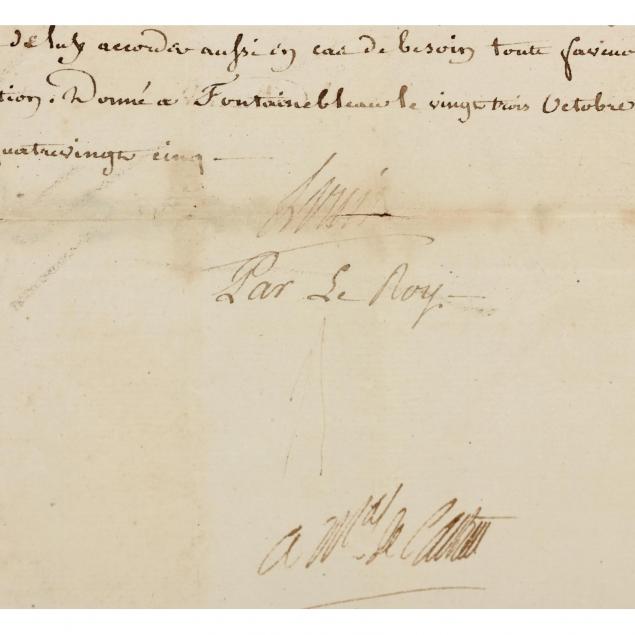 de luy accorder aussi en cas de besoin toute faveu
tion. Donné a Fontainebleau le vingt trois Octobre
quatrevingt cinq
Louis
Par Le Roy.
Le M.al de Castries